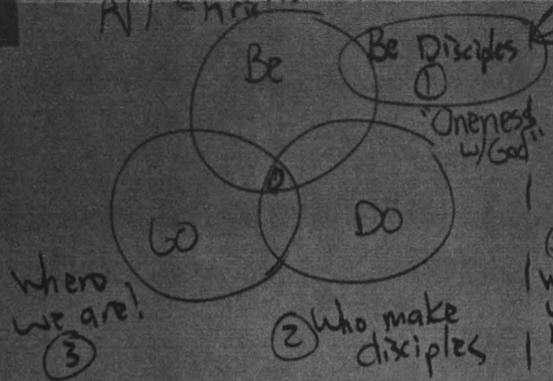 All
Be
Be Disciples
①
"Oneness
w/God"
GO
DO
Where
we are!
③
② Who make
disciples